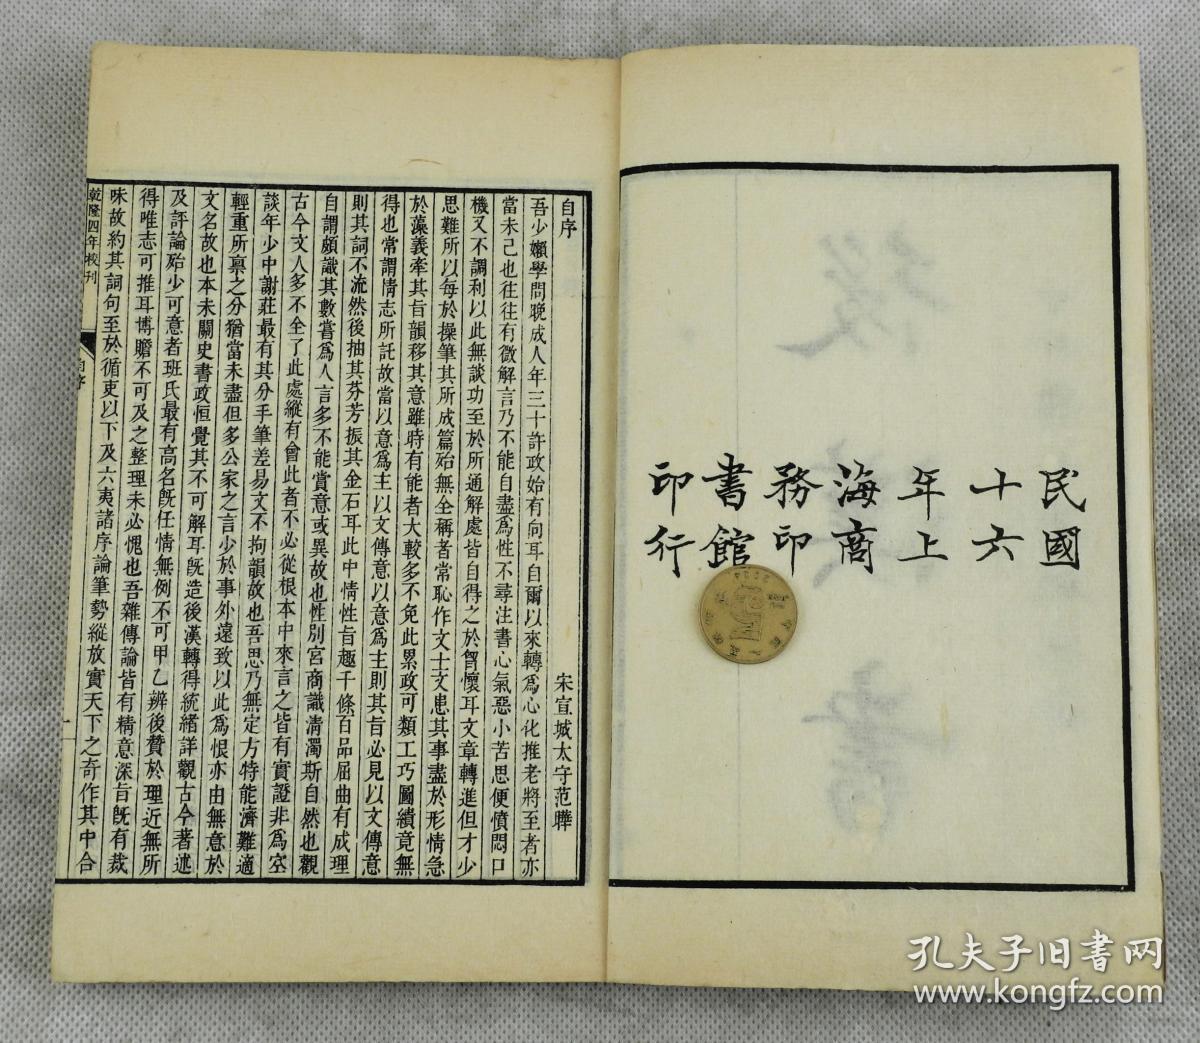 民國
十六
年上
海商
務印
書館
印行
自序
宋宣城太守范曄
吾少嬾學問晚成人年三十許政始有向耳自爾以來轉為心化推老將至者亦
當未已也往往有微解言乃不能自盡為性不尋注書心氣惡小苦思便憤悶口
機又不調利以此無談功至於所通解處皆自得之於胷懷耳文章轉進但才少
思難所以每於操筆其所成篇殆無全稱者常恥作文士文患其事盡於形情急
於藻義牽其旨韻移其意雖時有能者大較多不免此累政可類工巧圖繢竟無
得也常謂情志所託故當以意為主以文傳意以意為主則其旨必見以文傳意
則其詞不流然後抽其芬芳振其金石耳此中情性旨趣千條百品屈曲有成理
自謂頗識其數嘗為人言多不能賞意或異故也性別宮商識清濁斯自然也觀
古今文人多不全了此處縱有會此者不必從根本中來言之皆有實證非為空
談年少中謝莊最有其分手筆差易文不拘韻故也吾思乃無定方特能濟難適
輕重所稟之分猶當未盡但多公家之言少於事外遠致以此為恨亦由無意於
文名故也本未關史書政恒覺其不可解耳既造後漢轉得統緒詳觀古今著述
及評論殆少可意者班氏最有高名既任情無例不可甲乙辨後贊於理近無所
得唯志可推耳博贍不可及之整理未必愧也吾雜傳論皆有精意深旨既有裁
味故約其詞句至於循吏以下及六夷諸序論筆勢縱放實天下之奇作其中合
乾隆四年校刊
自序
一
孔夫子旧书网
www.kongfz.com